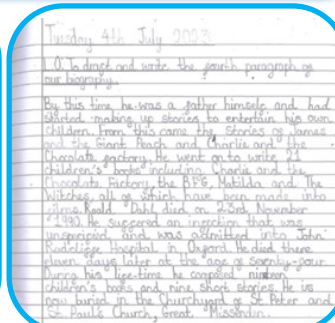 Tuesday 4th July 2023
L.O: To direct and write the fourth paragraph of
our biography.
By this time, he was a father himself and had
started making up stories to entertain his own
children. From this came the stories of James
and the Giant Peach and Charlie and the
Chocolate factory. He went on to write 21
children's books including Charlie and the
Chocolate Factory, the BFG, Matilda and The
Witches, all of which have been made into
films. Roald Dahl died on 23rd November
1990. He suffered an infection that was
unspecified and was admitted into John
Radcliffe Hospital, in Oxford. He died there
eleven days later at the age of seventy-four.
During his life-time he composed nineteen
children's books and nine short stories. He is
now buried in the Churchyard of St Peter and
St Paul's Church, Great Missendin.